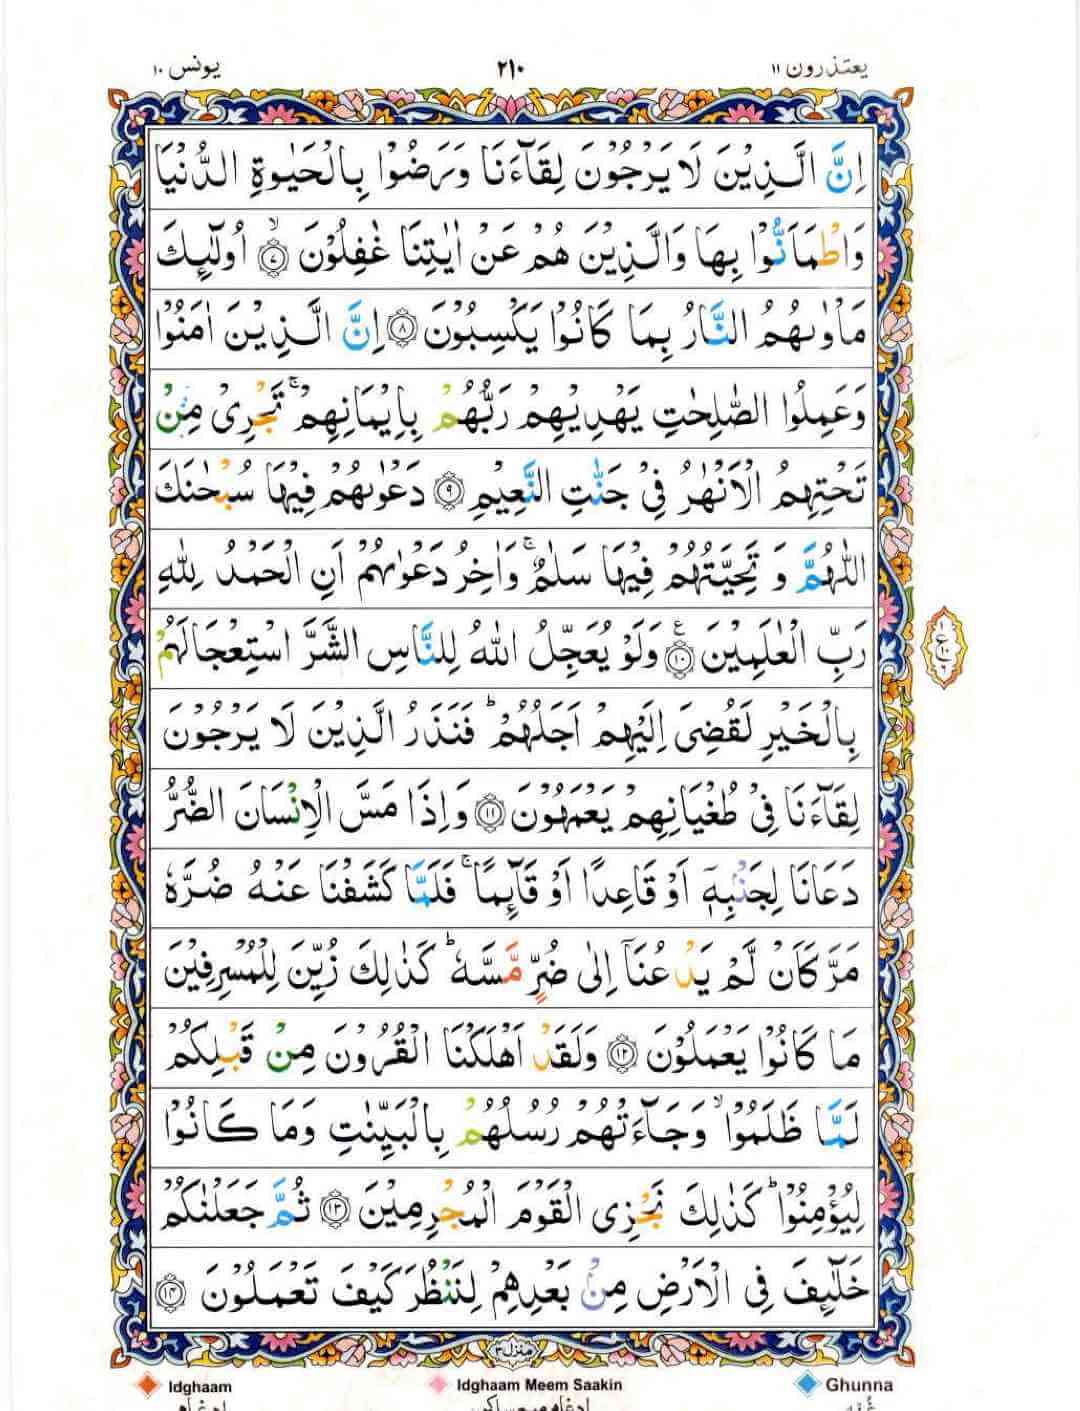 یعتذرون ۱۱ ۲۱۰ یونس ۱۰
اِنَّ الَّذِیْنَ لَا یَرْجُوْنَ لِقَآءَنَا وَرَضُوْا بِالْحَیٰوةِ الدُّنْیَا
وَاطْمَاَنُّوْا بِهَا وَالَّذِیْنَ هُمْ عَنْ اٰیٰتِنَا غٰفِلُوْنَ ۙ﴿۷﴾ اُولٰٓئِكَ
مَاْوٰىهُمُ النَّارُ بِمَا كَانُوْا یَكْسِبُوْنَ ﴿۸﴾ اِنَّ الَّذِیْنَ اٰمَنُوْا
وَعَمِلُوا الصّٰلِحٰتِ یَهْدِیْهِمْ رَبُّهُمْ بِاِیْمَانِهِمْ ۚ تَجْرِیْ مِنْ
تَحْتِهِمُ الْاَنْهٰرُ فِیْ جَنّٰتِ النَّعِیْمِ ﴿۹﴾ دَعْوٰىهُمْ فِیْهَا سُبْحٰنَكَ
اللّٰهُمَّ وَ تَحِیَّتُهُمْ فِیْهَا سَلٰمٌ ۚ وَاٰخِرُ دَعْوٰىهُمْ اَنِ الْحَمْدُ لِلّٰهِ
رَبِّ الْعٰلَمِیْنَ ﴿۱۰﴾ ع وَلَوْ یُعَجِّلُ اللّٰهُ لِلنَّاسِ الشَّرَّ اسْتِعْجَالَهُمْ
بِالْخَیْرِ لَقُضِیَ اِلَیْهِمْ اَجَلُهُمْ ؕ فَنَذَرُ الَّذِیْنَ لَا یَرْجُوْنَ
لِقَآءَنَا فِیْ طُغْیَانِهِمْ یَعْمَهُوْنَ ﴿۱۱﴾ وَاِذَا مَسَّ الْاِنْسَانَ الضُّرُّ
دَعَانَا لِجَنْۢبِهٖۤ اَوْ قَاعِدًا اَوْ قَآئِمًا ۚ فَلَمَّا كَشَفْنَا عَنْهُ ضُرَّهٗ
مَرَّ كَاَنْ لَّمْ یَدْعُنَاۤ اِلٰی ضُرٍّ مَّسَّهٗ ؕ كَذٰلِكَ زُیِّنَ لِلْمُسْرِفِیْنَ
مَا كَانُوْا یَعْمَلُوْنَ ﴿۱۲﴾ وَلَقَدْ اَهْلَكْنَا الْقُرُوْنَ مِنْ قَبْلِكُمْ
لَمَّا ظَلَمُوْا ۙ وَجَآءَتْهُمْ رُسُلُهُمْ بِالْبَیِّنٰتِ وَمَا كَانُوْا
لِیُؤْمِنُوْا ؕ كَذٰلِكَ نَجْزِی الْقَوْمَ الْمُجْرِمِیْنَ ﴿۱۳﴾ ثُمَّ جَعَلْنٰكُمْ
خَلٰٓئِفَ فِی الْاَرْضِ مِنْۢ بَعْدِهِمْ لِنَنْظُرَ كَیْفَ تَعْمَلُوْنَ ﴿۱۴﴾
منزل ۳
Idghaam Idghaam Meem Saakin Ghunna